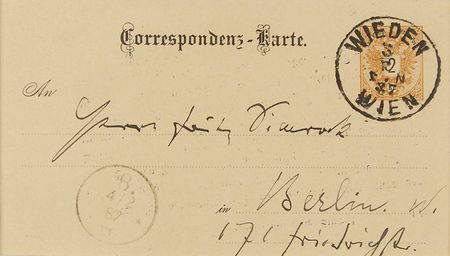 Correspondenz-Karte.
WIEDEN
WIEN
An
Herrn Fritz Simrock
in Berlin. W.
171 Friedrichstr.